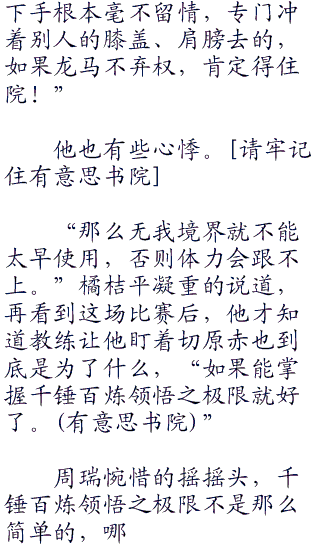 下手根本毫不留情，专门冲
着别人的膝盖、肩膀去的，
如果龙马不弃权，肯定得住
院！”
他也有些心悸。[请牢记
住有意思书院]
“那么无我境界就不能
太早使用，否则体力会跟不
上。”橘桔平凝重的说道，
再看到这场比赛后，他才知
道教练让他盯着切原赤也到
底是为了什么，“如果能掌
握千锤百炼领悟之极限就好
了。(有意思书院)”
周瑞惋惜的摇摇头，千
锤百炼领悟之极限不是那么
简单的，哪